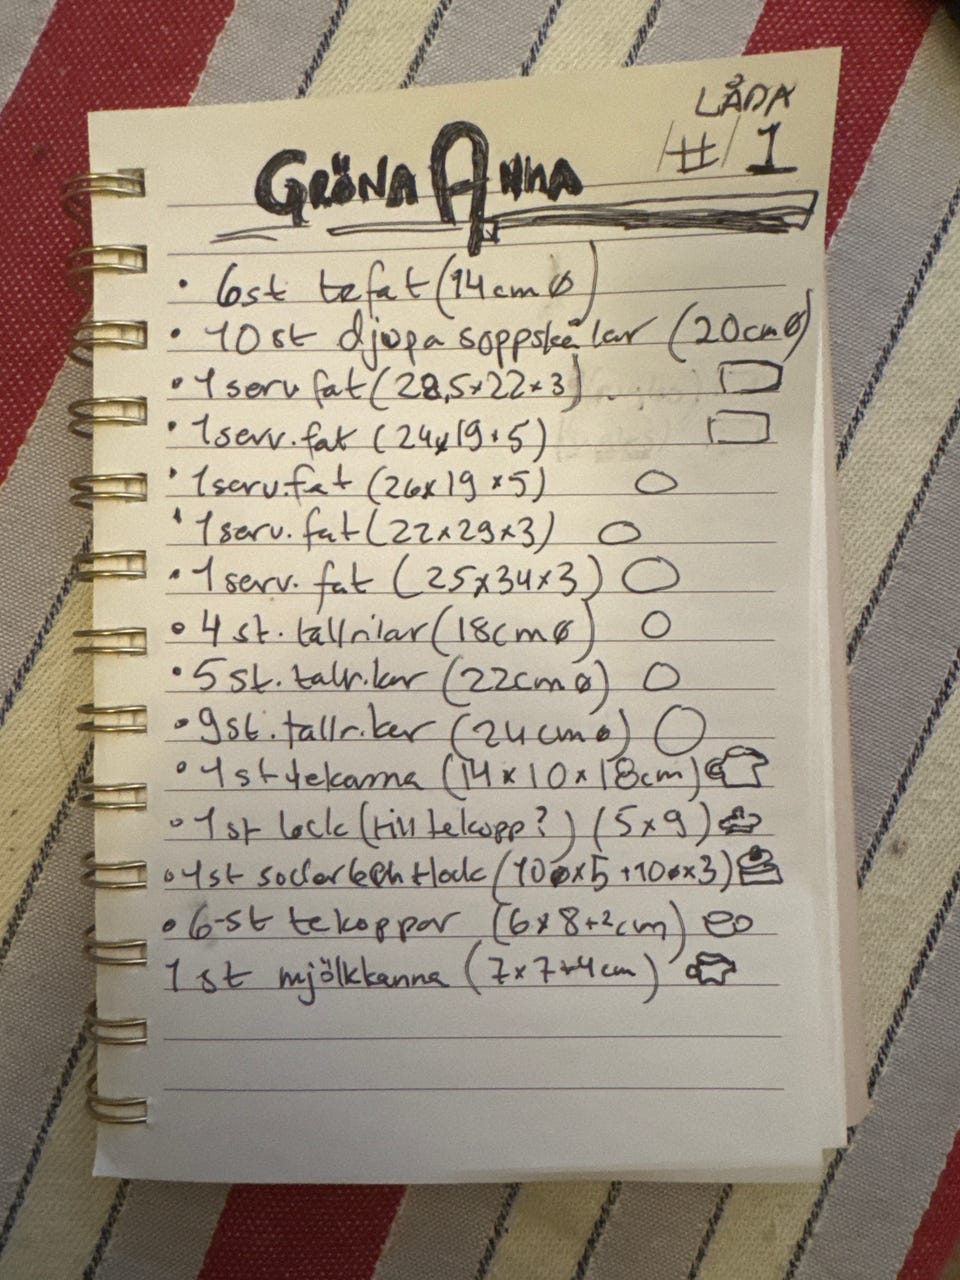 LÅDA
# 1
GRÖNA ANNA
• 6st tefat (14cm ø)
• 10 st djupa soppskålar (20cm ø)
• 1 serv fat (28,5x22x3)
• 1 serv. fat (24x19x5)
• 1 serv. fat (26x19x5)
• 1 serv. fat (22x29x3)
• 1 serv. fat (25x34x3)
• 4 st. tallrikar (18cm ø)
• 5 st. talrikar (22cm ø)
• 9 st. tallriker (24cm ø)
• 1 st tekanna (14x10x18cm)
• 1 st lock (till tekopp?) (5x9)
• 1st sockerk och lock (10øx5 + 10øx3)
• 6-st tekoppar (6x8+2cm)
1 st mjölkkanna (7x7+4cm)